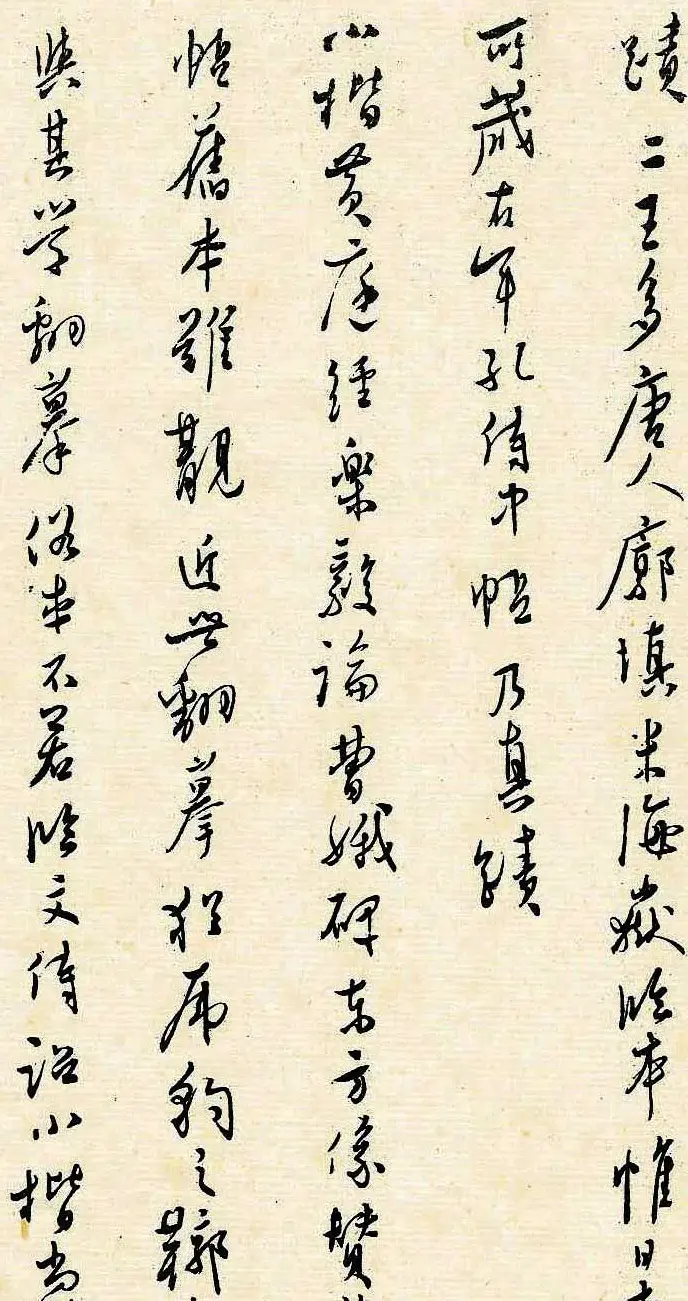 蹟二王多唐人廓填米海嶽臨本惟日本
所藏右軍孔侍中帖乃真蹟
小楷黄庭經樂毅論曹娥碑東方像贊
帖舊本難覯近世翻摹猶虎豹之鞟
與其学翻摹俗本不若臨文待詔小楷尚